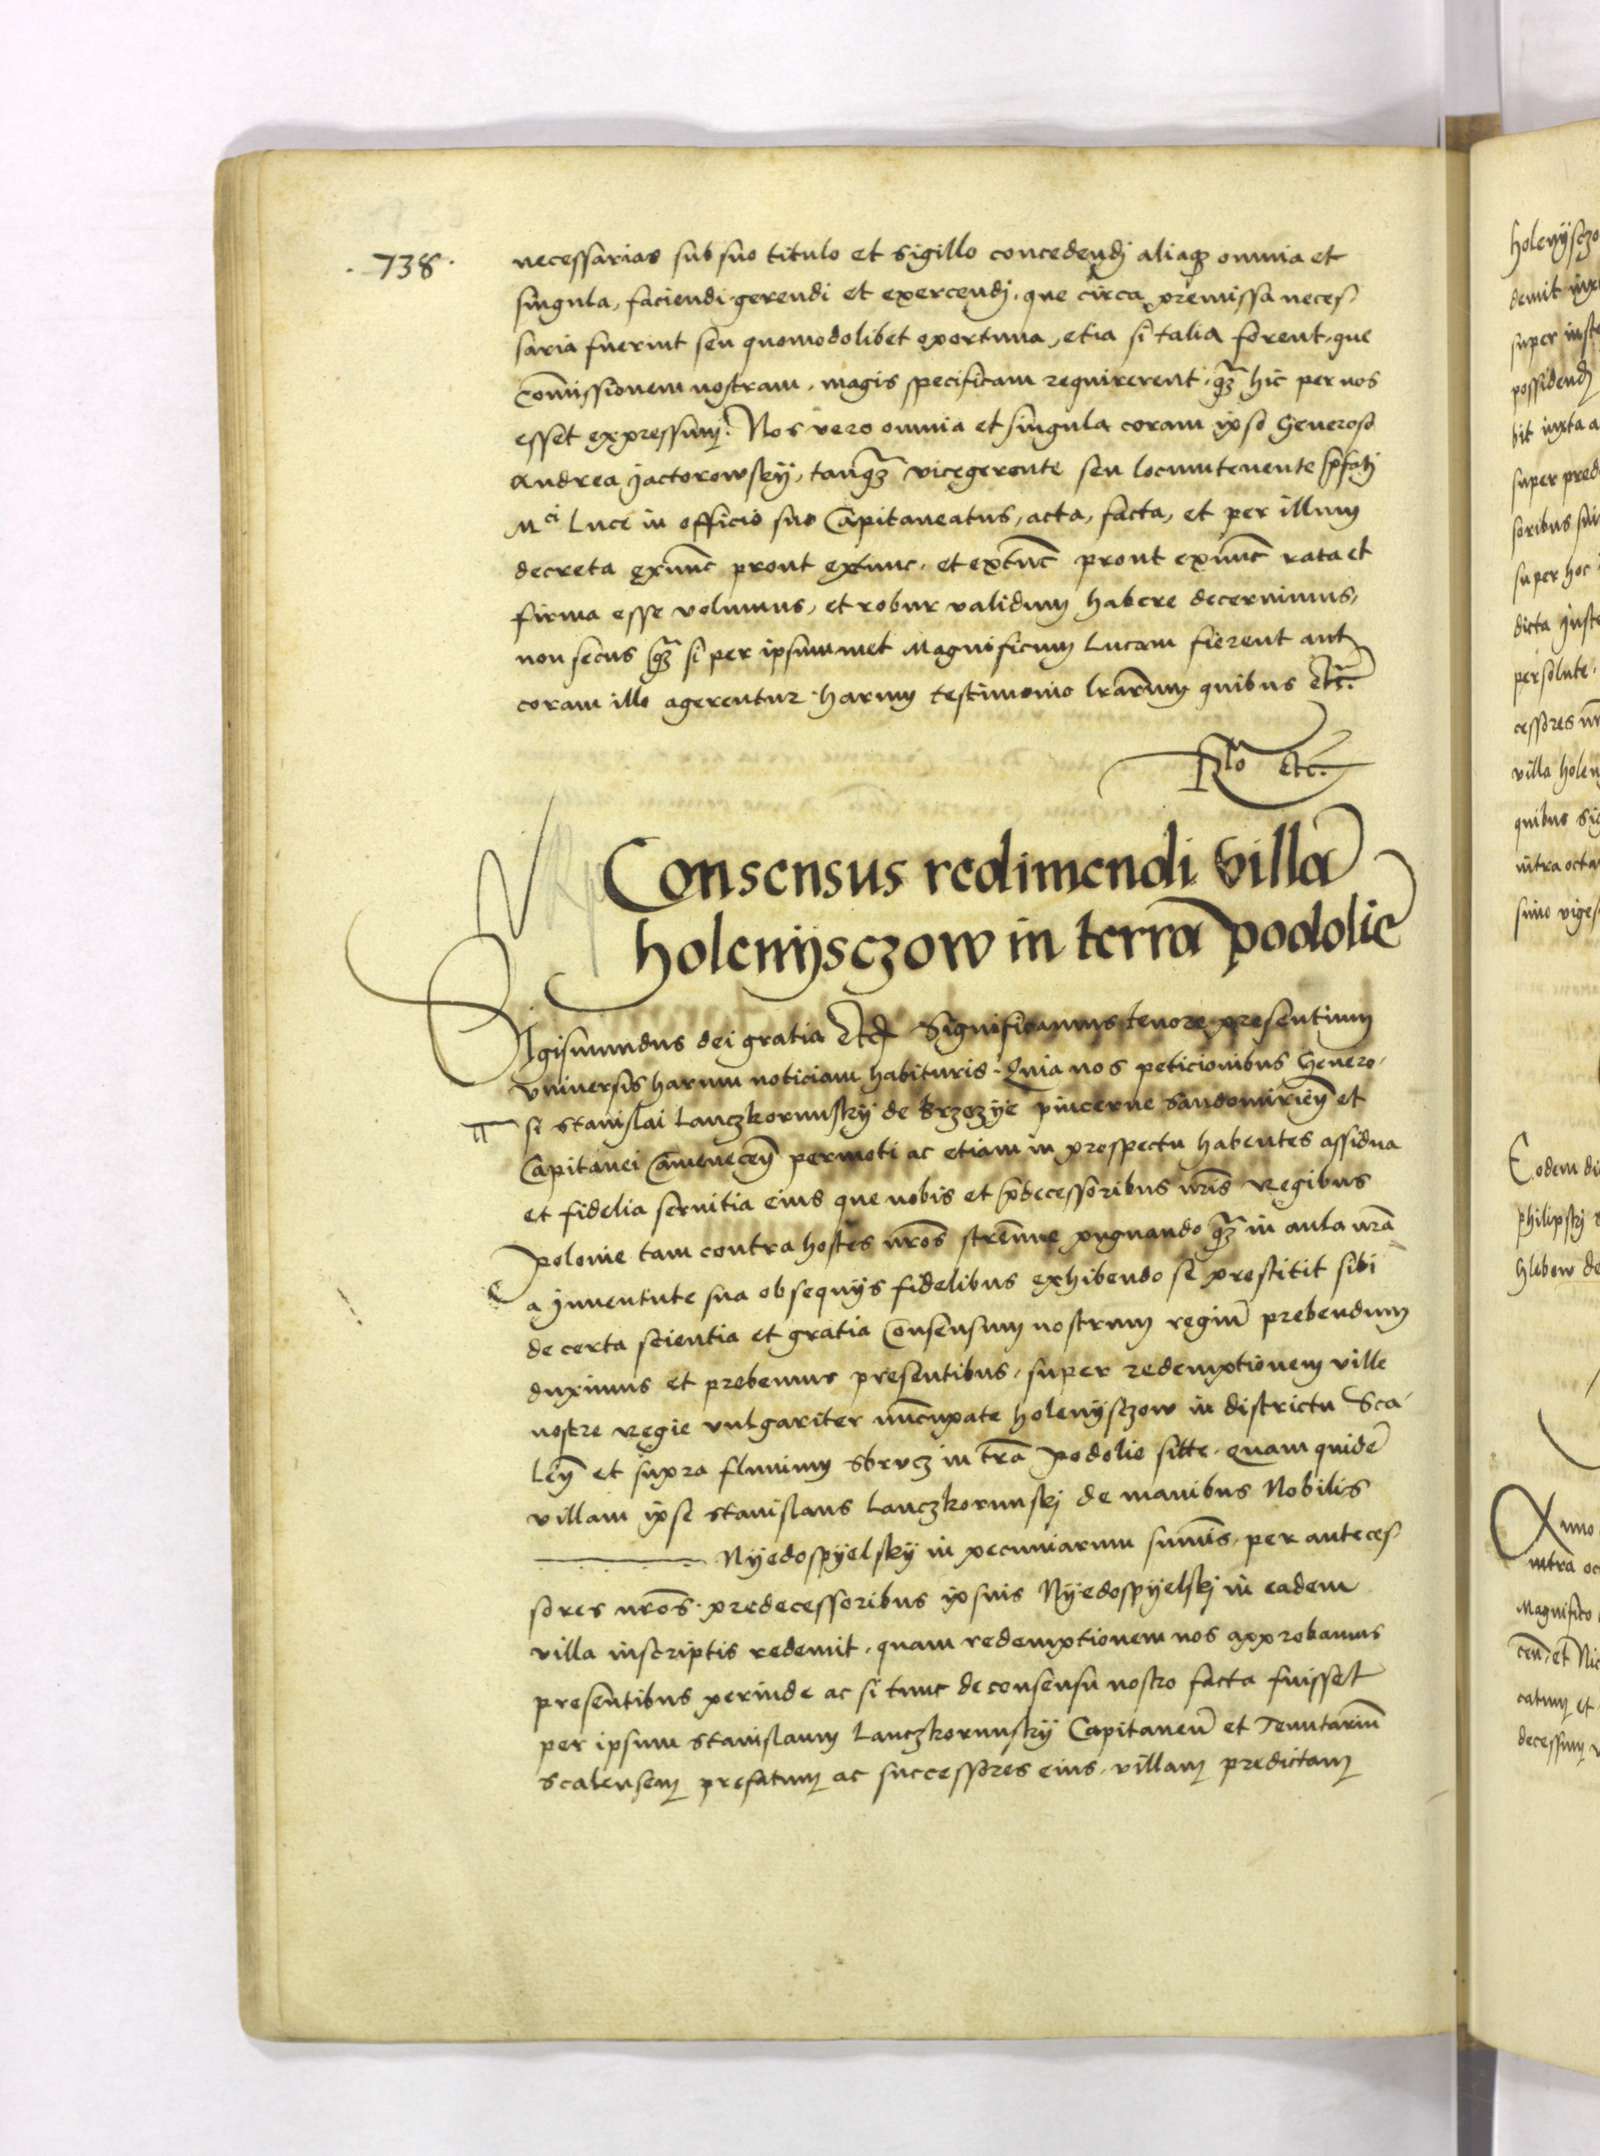 738
necessarias sub suo titulo et sigillo concedendj aliaqz omnia et
singula, faciendi gerendi et exercendj, que circa premissa neces
saria fuerint seu quomodolibet oportuna, etia si talia forent, que
Comissionem nostram, magis specificam requirerent, qz hic per nos
esset expressum. Nos vero omnia et singula coram ipso Generoso
Andrea Jactorowsky, tanqz vicegerente seu locumtenente pfatj
Mci Luce in officio suo Capitaneatus, acta, facta, et per illum
decreta exnuc prout extunc, et extuc prout exnuc rata et
firma esse volumus, et robur validum habere decernimus,
non secus qz si per ipsummet Magnificum Lucam fierent aut
coram illo agerentur. harum testimonio lrarum quibus etc.
Rlo etc.
Consensus redimendi villa
holenijsczow in terra podolie
Sigismundus dei gratia etc Significamus tenore presentium
vniversis harum noticiam habituris. Quia nos peticionibus Genero
si Stanislai Lanczkorunskij de Brzezye pincerne Sandomirien et
Capitanei Camenecen permoti ac etiam in prospectu habentes assidua
et fidelia seruitia eius que nobis et pdecessoribus nris Regibus
polonie tam contra hostes nros strenue pugnando qz in aula nra
a Juuentute sua obsequijs fidelibus exhibendo se prestitit sibi
de certa scientia et gratia Consensum nostrum regiu prebendum
duximus et prebemus presentibus, super redemptionem ville
nostre Regie vulgariter nucupate holenijsczow in districtu Sca
len et supra fluuium Sbrucz in tra Podolie sitte. Quam quide
villam ipse Stanislaus Lanczkorunskj de manibus Nobilis
Nijedospijelskij in pecuniarum sumis, per anteces
sores nros predecessoribus ipsius Nijedospijelskj in eadem
villa inscriptis redemit, quam redemptionem nos approbamus
presentibus perinde ac si tunc de consensu nostro facta fuisset
per ipsum Stanislaum Lanczkorunskij Capitaneu et Tenutariu
Scalensem prefatum ac successores eius, villam predictam